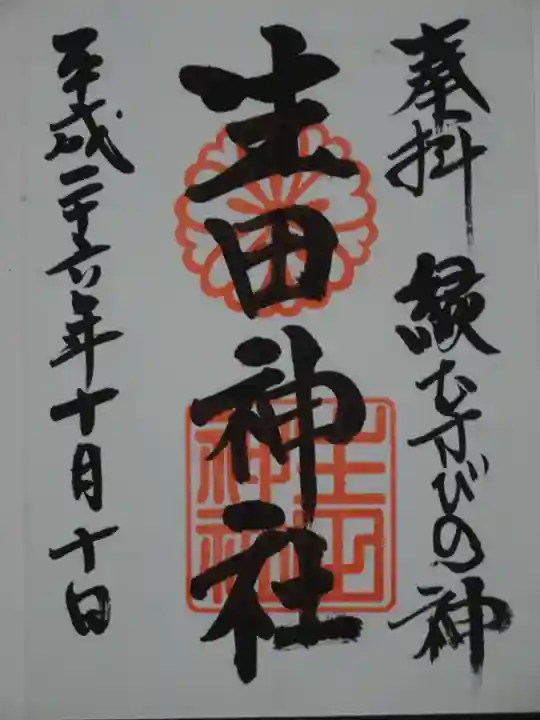 奉拝 縁むすびの神
生田神社
平成二十六年十月十日
生田神社